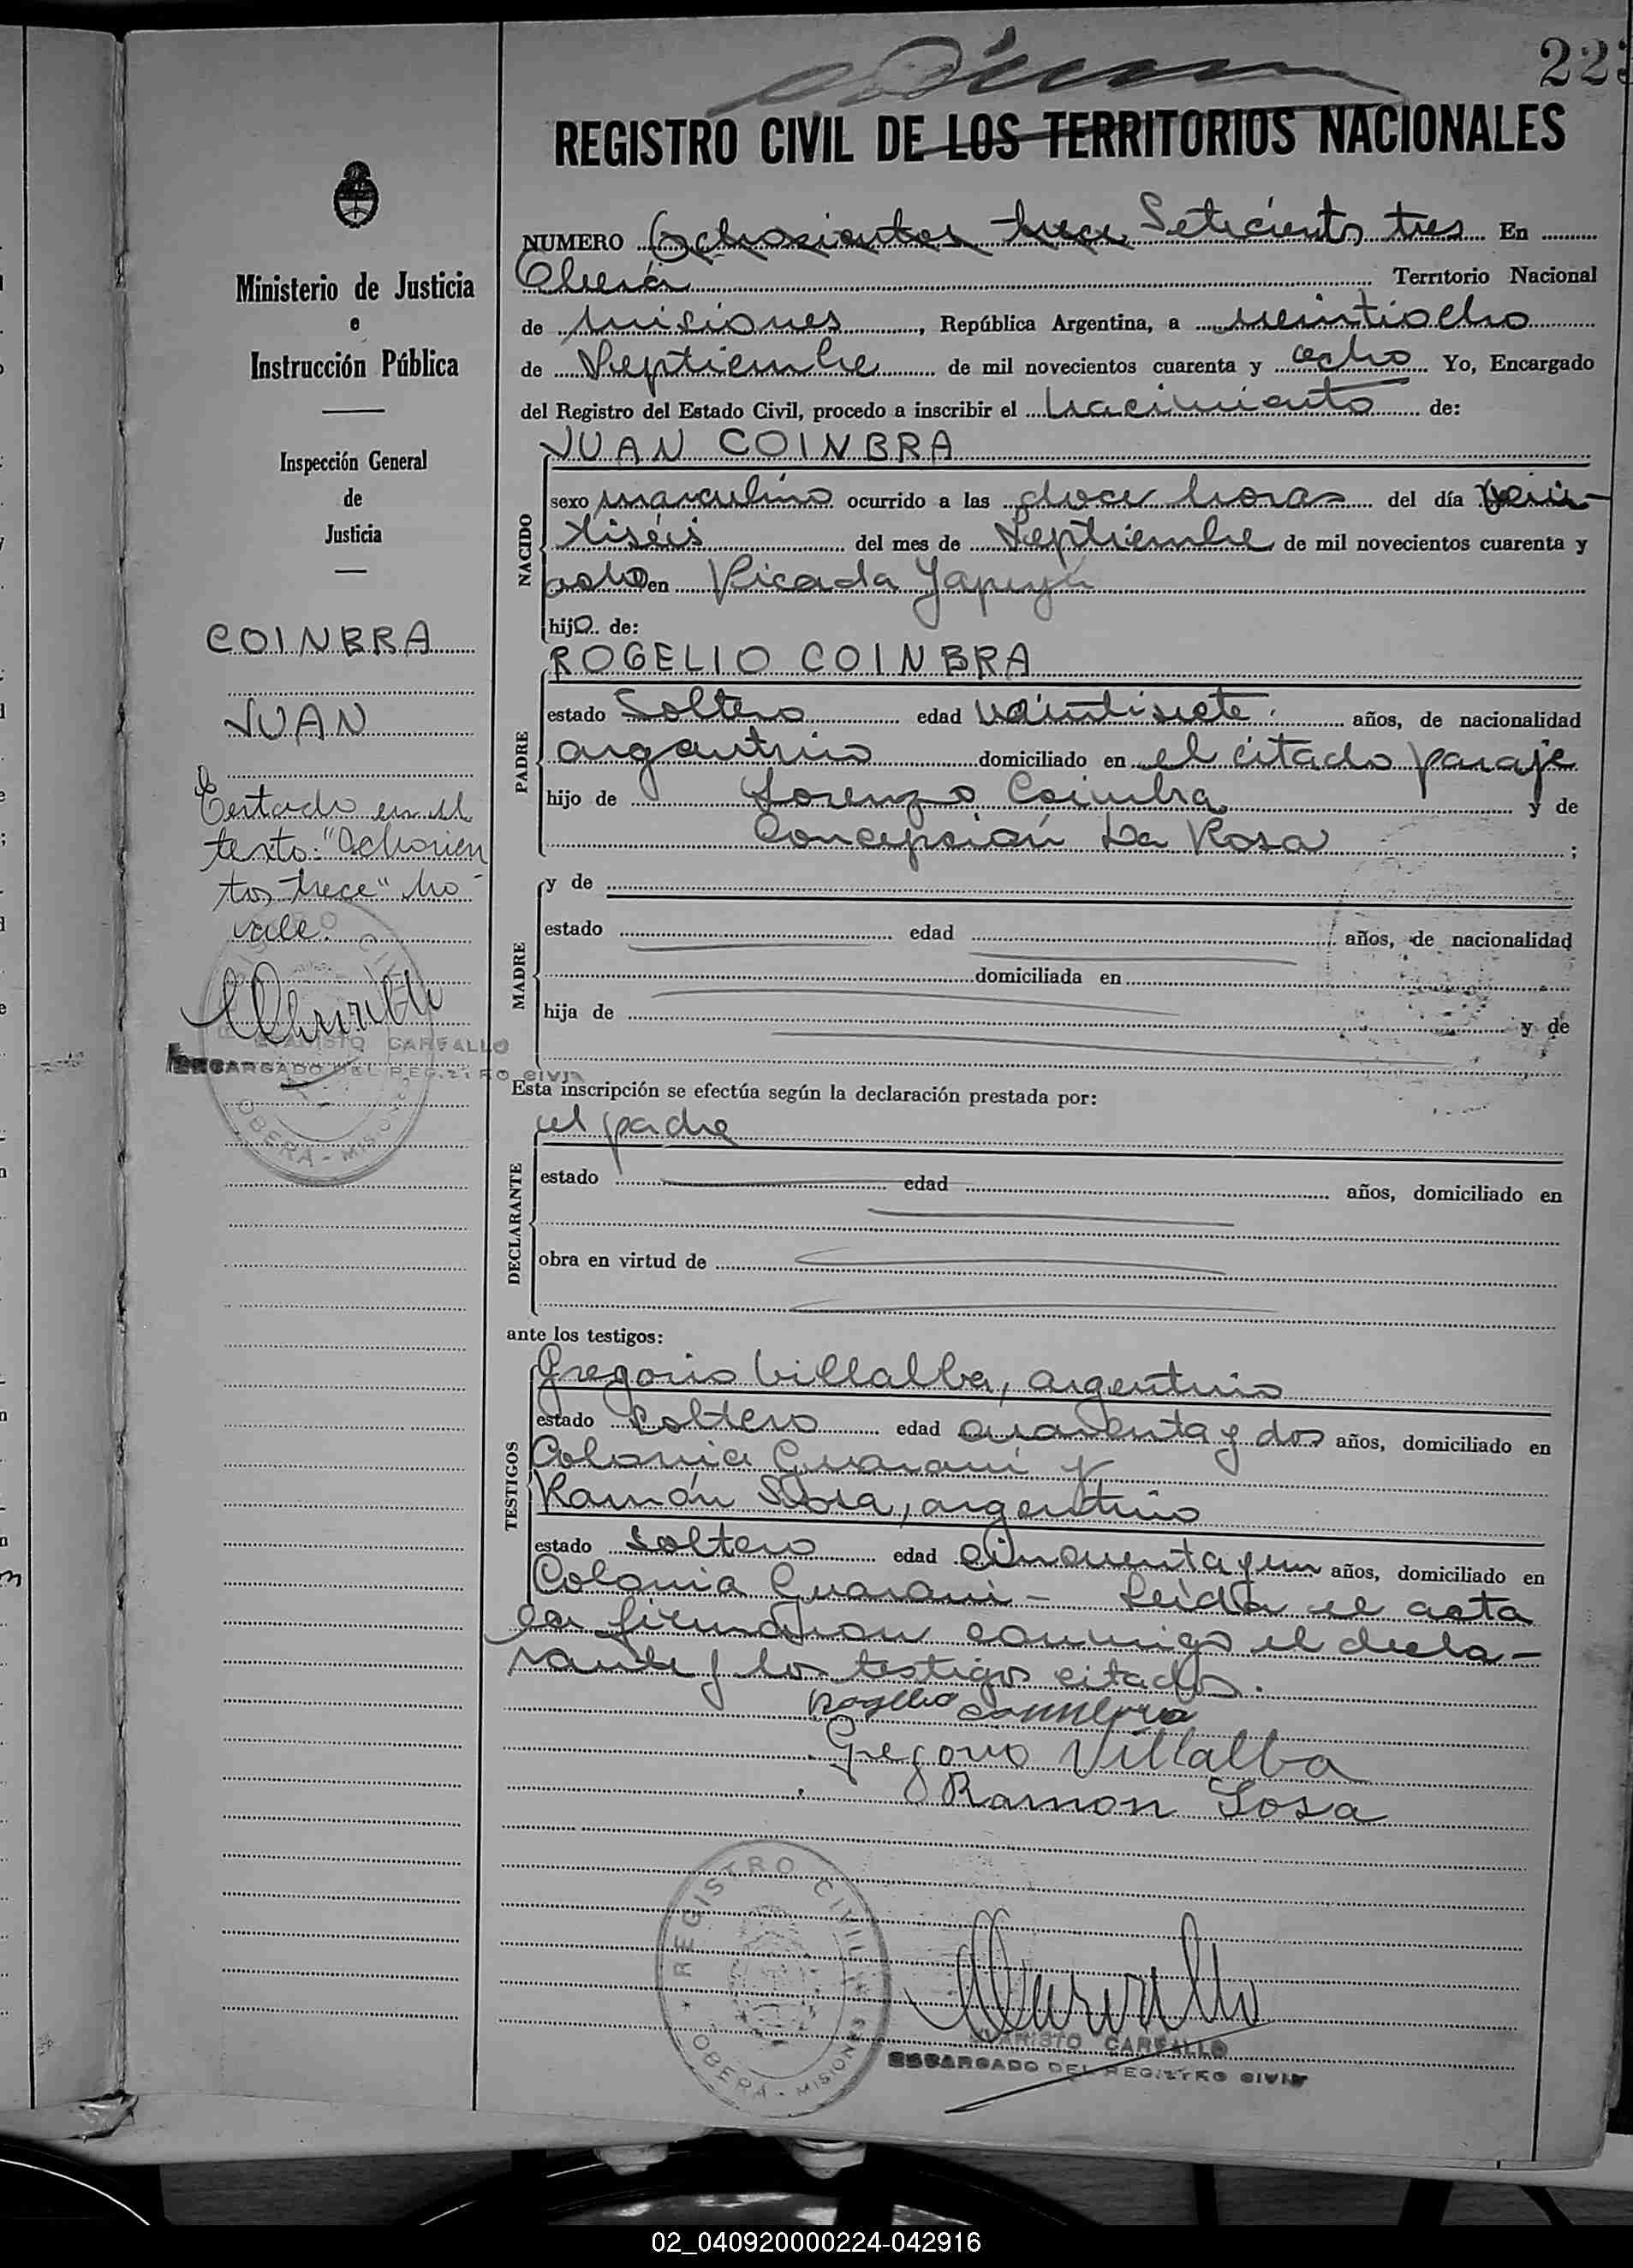 223
REGISTRO CIVIL DE LOS TERRITORIOS NACIONALES
Ministerio de Justicia
e
Instrucción Pública
Inspección General
de
Justicia
COINBRA
JUAN
Testado en el
texto: "Ochocien
tos trece" no
vale.
EVARISTO CARVALLO
ENCARGADO DEL REGISTRO CIVIL
OBERA - MISIONES
NUMERO Ochocientos trece Seteciento tres En
Oberá Territorio Nacional
de Misiones, República Argentina, a veintiocho
de Septiembre de mil novecientos cuarenta y ocho Yo, Encargado
del Registro del Estado Civil, procedo a inscribir el nacimiento de:
NACIDO
JUAN COINBRA
sexo masculino ocurrido a las doce horas del día vein-
tiséis del mes de Septiembre de mil novecientos cuarenta y
ocho en Picada Yapeyú
hijo de:
PADRE
ROGELIO COINBRA
estado Soltero edad veintisiete años, de nacionalidad
argentino domiciliado en el citado paraje
hijo de Lorenzo Coimbra y de
Concepción Da Rosa ;
MADRE
y de
estado edad años, de nacionalidad
domiciliada en
hija de y de
Esta inscripción se efectúa según la declaración prestada por:
DECLARANTE
el padre
estado edad años, domiciliado en
obra en virtud de
ante los testigos:
TESTIGOS
Gregorio Villalba, argentino
estado soltero edad cuarenta y dos años, domiciliado en
Colonia Guaraní y
Ramón Sosa, argentino
estado soltero edad cincuenta y un años, domiciliado en
Colonia Guaraní - Leída el acta
la firmaron conmigo el decla-
rante y los testigos citados.
Rogelio Coinbra
Gregorio Villalba
Ramon Sosa
REGISTRO CIVIL
OBERA - MISIONES
EVARISTO CARVALLO
ENCARGADO DEL REGISTRO CIVIL
02_040920000224-042916